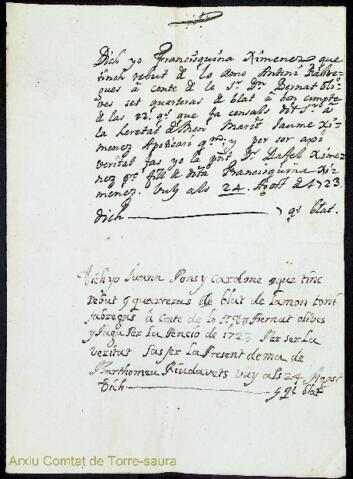 Dich yo Francisquina Ximenez que
tinch rebut de lo amo Antoni Fabre-
gues á conte de lo Sr. Dr. Bernat Oli-
ves set quarteras de blat á bon compte
de las 22 qs. que fa censals dit Sr. á
la heretat de Mon Marit Jaume Xi-
menez Apotecari qm; y per ser axi
veritat fas yo la pnt. Dr. Raffel Ximez
nez qs. fill de dita Francisquina Xiz
menez. vuy als 24. Agost de 1723.
dich 7 qs. blat.
Dich yo Juana Pons y Cardone que tinc
rebut 9 quarteras de blat de lamon toni
fabregas á conte de lo Sr. Bernat olives
y paga per La Pencio de 1723 Per ser La
veritat fas fer La Present de ma de
Barthomeu Riudavets vuy als 24 Agost
Dich 9 qs blat
Arxiu Comtat de Torre-saura